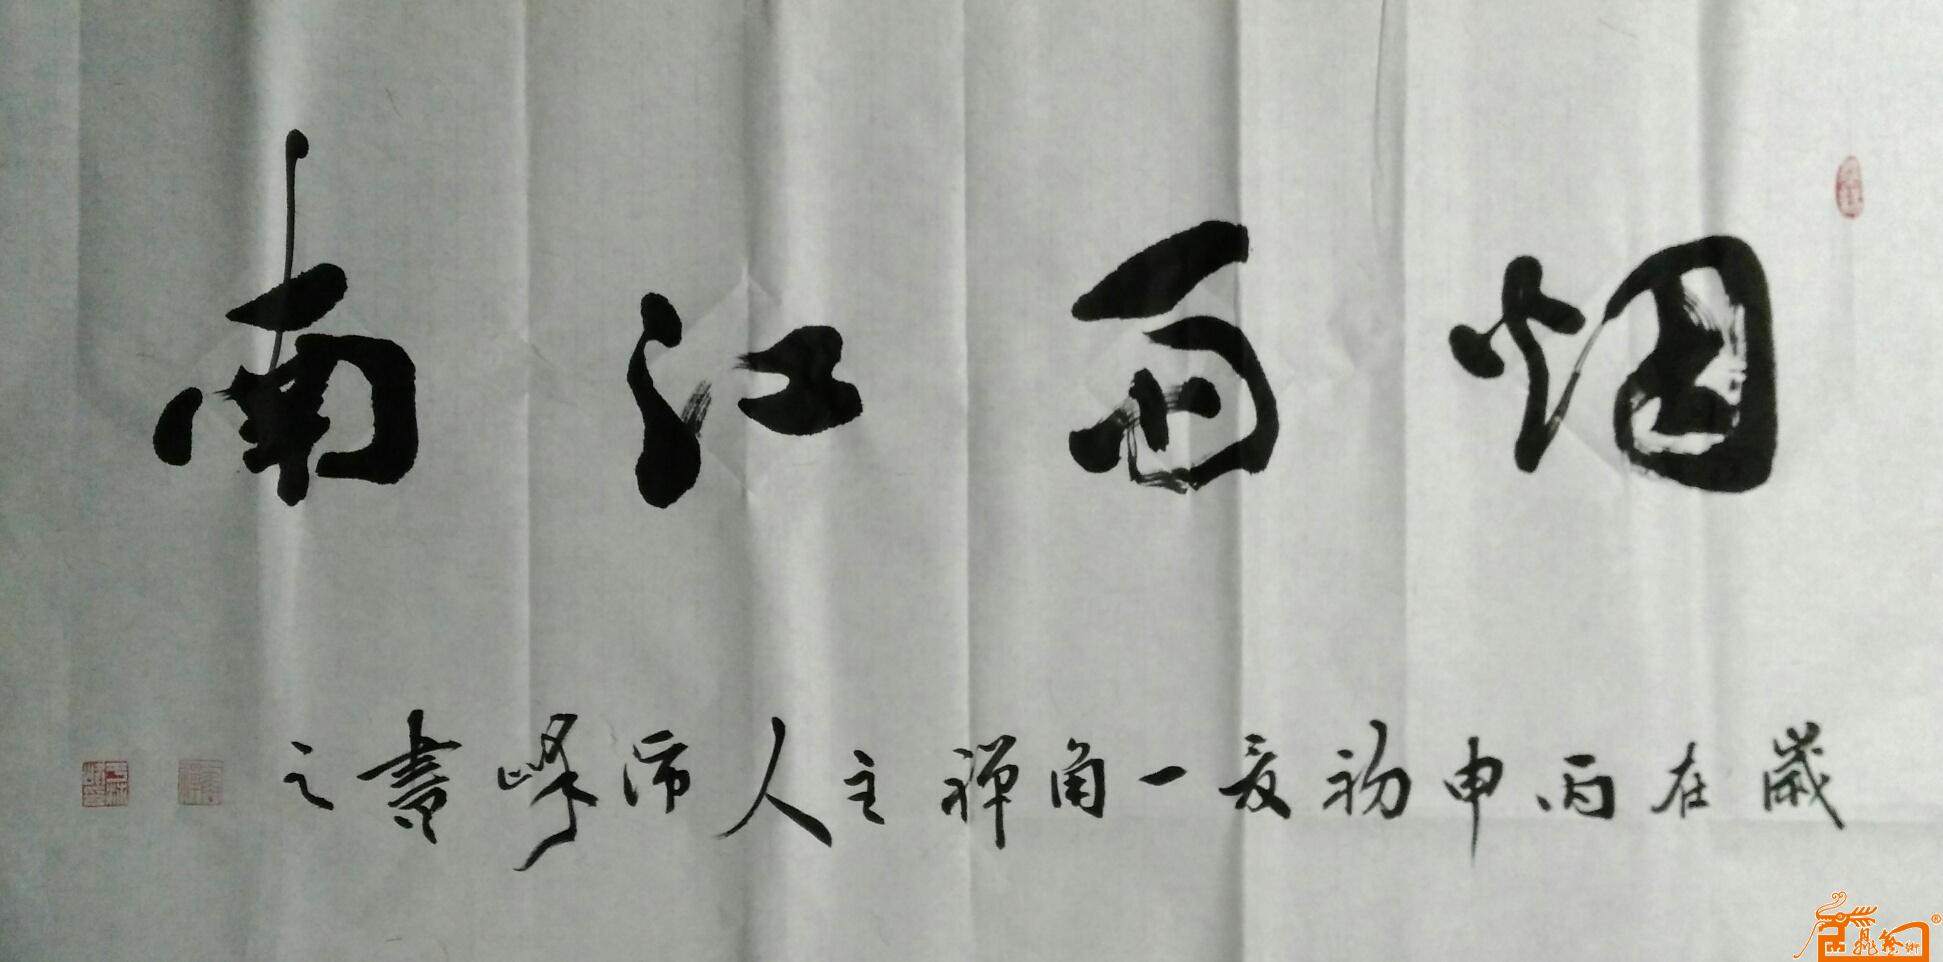 烟雨江南
歲在丙申初夏一角禪主人沛峰書之